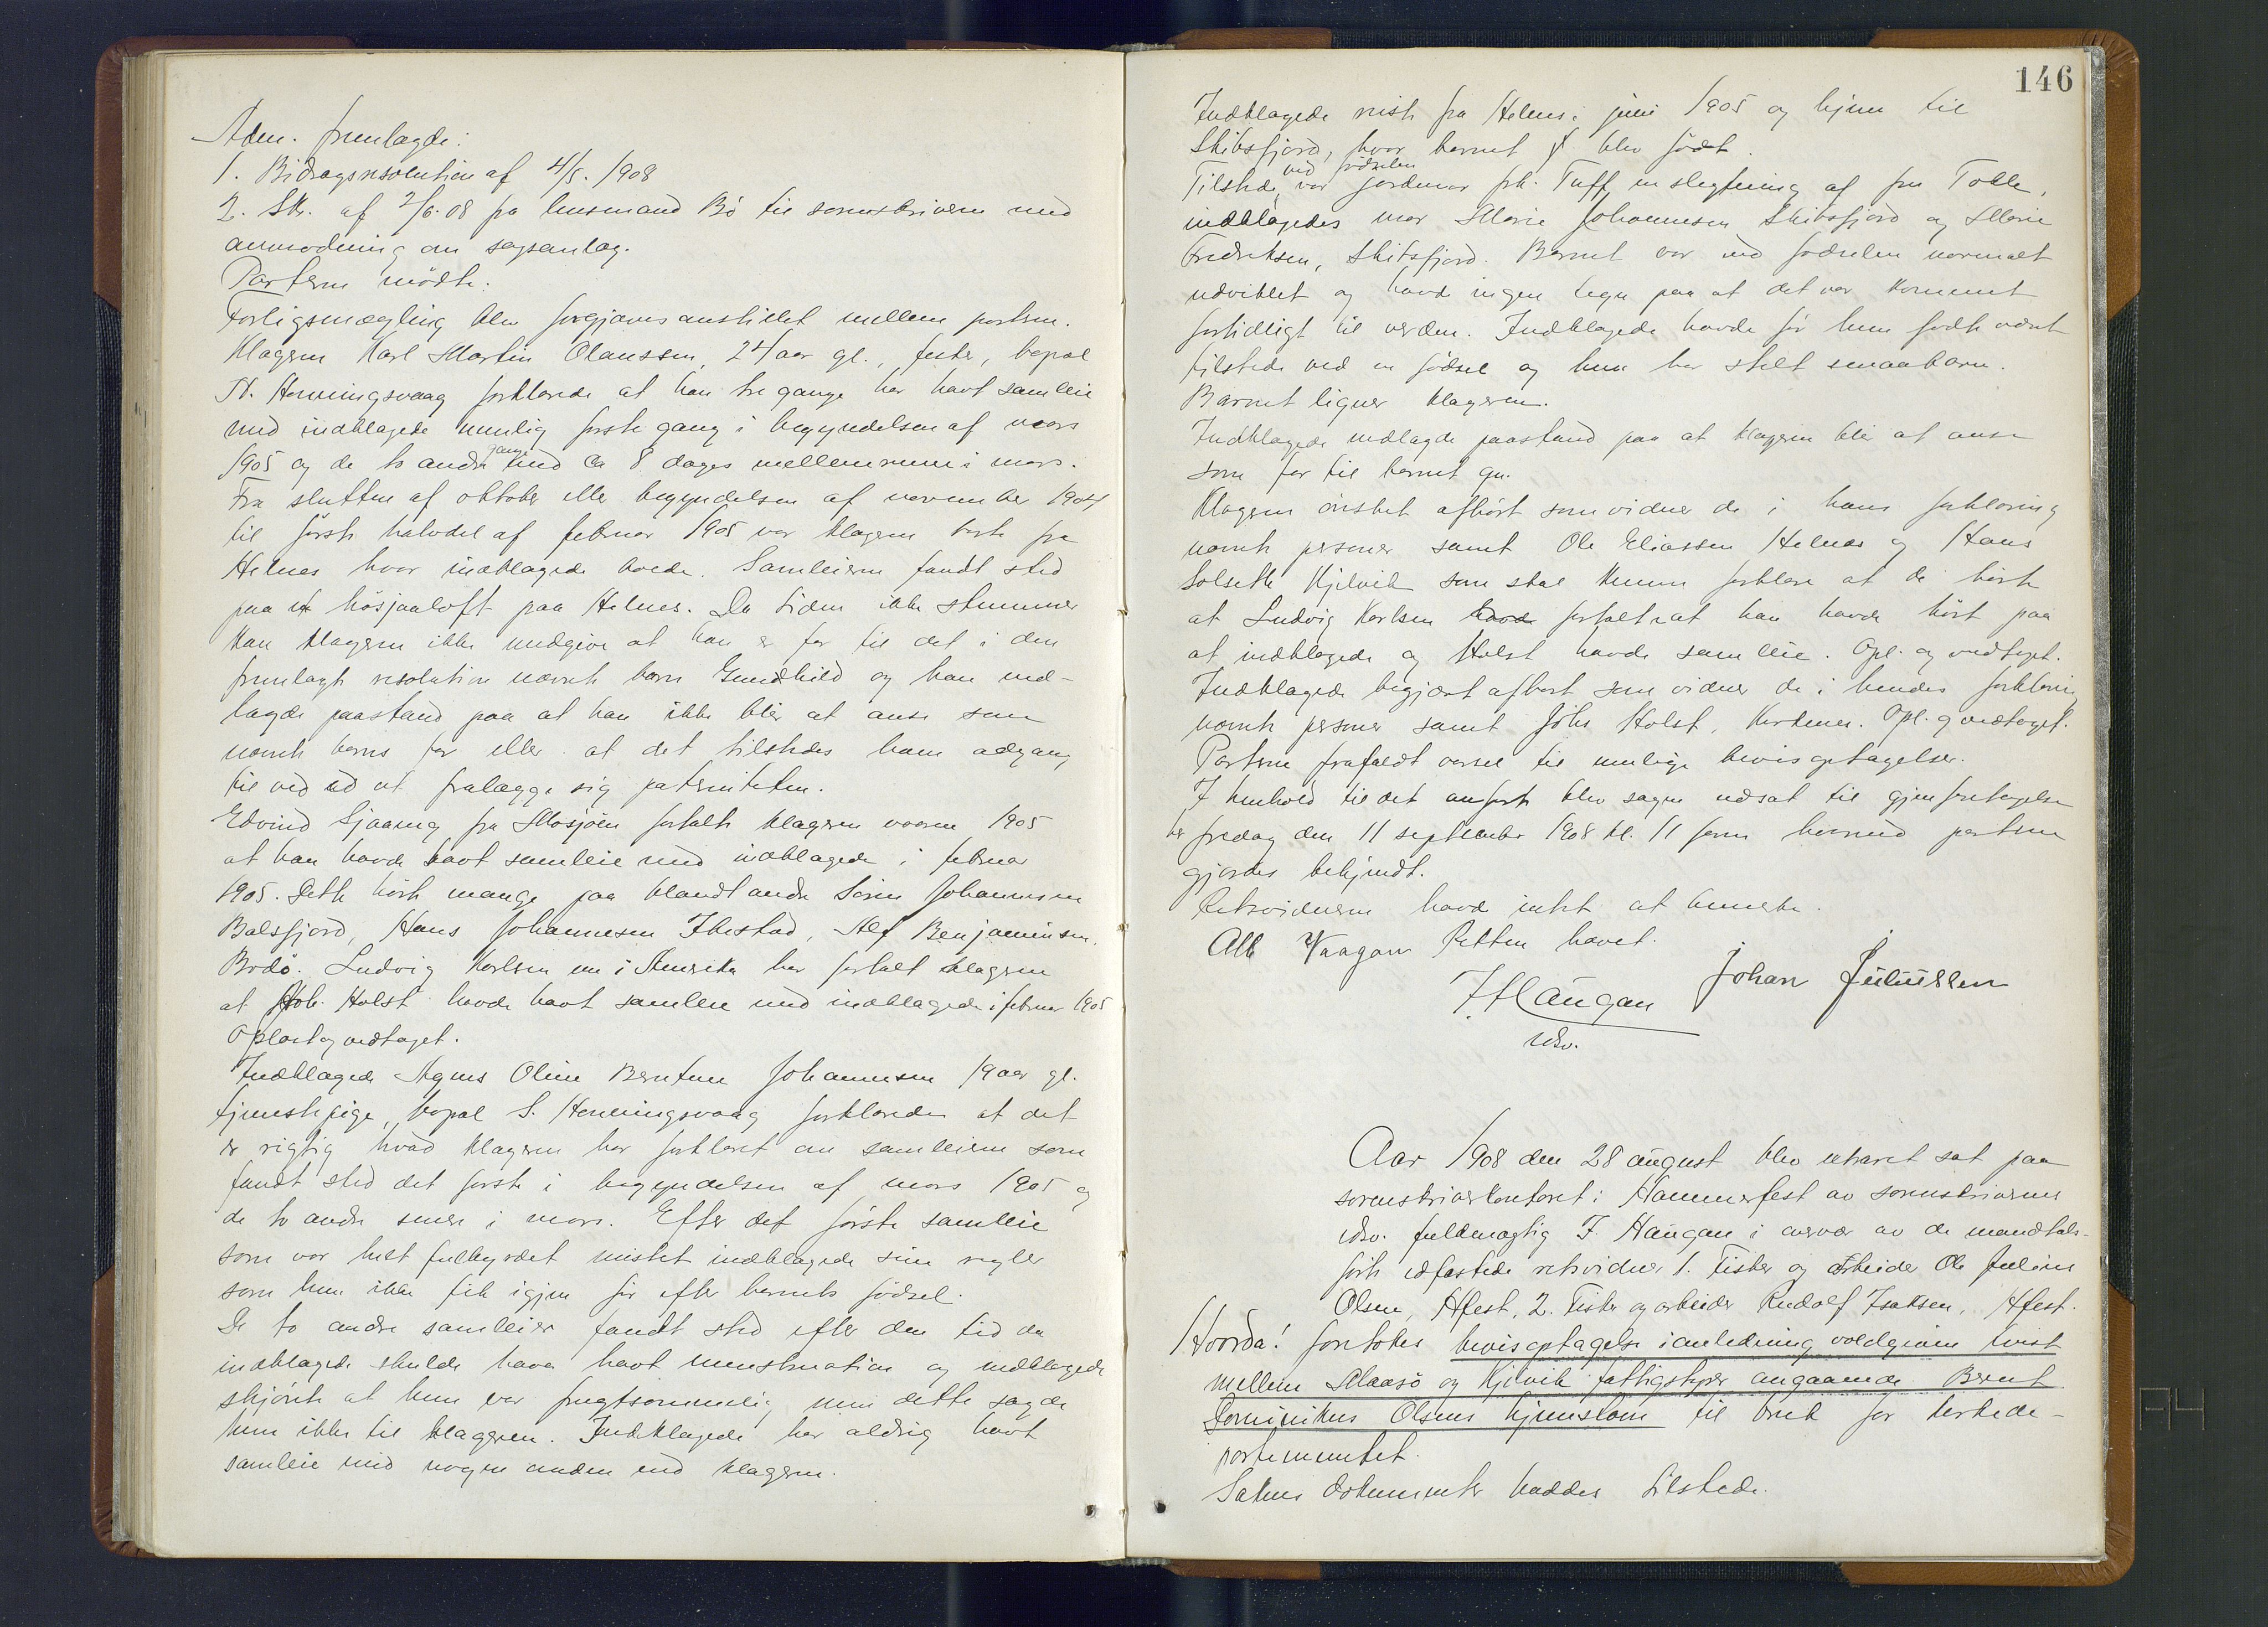 Adm. fremlagde:
1. Bidragsresolution af 4/5. 1908
2. Skr. af 2/6.08 fra lensmand Bö til sorenskriveren med
anmodning om sagsanlæg.
Parterne mödte.
Forligsmægling blev forgjæves anstillet mellem parterne.
Klageren Karl Martin Olaussen, 24 aar gl., fisker, bopæl
N. Honningsvaag forklarede at han tre gange har havt samleie
med indklagede nemlig förste gang i begyndelsen af mars
1905 og de to andre gange med ca 8 dages mellemrum i mars.
Fra slutten af oktober eller begyndelsen af november 1904
til förste halvdel af februar 1905 var klageren borte fra
Helnes hvor indklagede boede. Samleierne fandt sted
paa et hösjaaloft paa Helnes. Da tiden ikke stemmer
kan klageren ikke medgive at han er far til det i den
fremlagte resolution nævnte barn Gundhild og han ned-
lagde paastand paa at han ikke blir at anse som
nævnte barns far eller at det tilstedes ham adgang
til ved ed at fralægge sig paterniteten.
Edvind Sjaaeng fra Mosjöen fortalte klageren vaaren 1905
at han havde havt samleie med indklagede i februar
1905. Dette hörte mange paa blandt andre Sören Johannesen
Balsfjord, Hans Johannesen Ibestad, Alf Benjaminsen,
Bodö. Ludvig Karlsen nu i Amerika har fortalt klageren
at Joh. Holst havde havt samleie med indklagede i februar 1905
Oplæst og vedtaget.
Indklagede Agnes Oline Berntine Johannesen 19 aar gl.
tjenestepige, bopæl S. Honningsvaag forklarede at det
er rigtig hvad klageren har forklaret om samleierne som
fandt sted det förste i begyndelsen af mars 1905 og
de to andre senere i mars. Efter det förste samleie
som var helt fuldbyrdet mistet indklagede sine regler
som hun ikke fik igjen för efter barnets födsel.
De to andre samleier fandt sted efter den tid da
indklagede skulde have havt menstruation og indklagede
skjönte at hun var frugtsommelig men dette sagde
hun ikke til klageren. Indklagede har aldrig havt
samleie med nogen anden end klageren.
146
Indklagede reiste fra Helnes i juni 1905 og hjem til
Skibsfjord, hvor barnet blev födt.
Tilstede ved födselen var jordemor frk. Tuff, en slegtning af fru Tolle,
indklagedes mor Marie Johannesen Skibsfjord og Marie
Fredriksen, Skibsfjord. Barnet var ved födselen normalt
udviklet og havde ingen tegn paa at det var kommet
fortidligt til verden. Indklagede havde för hun födte været
tilstede ved en födsel og hun har stelt smaabarn.
Barnet ligner klageren.
Indklagede nedlagde paastand paa at klageren blir at anse
som far til barnet Gu.
Klageren önsket afhört som vidner de i hans forklaring
nævnte personer samt Ole Eliassen Helnes og Hans
Solseth Kjelvik som skal kunne forklare at de hörte
at Ludvig Karlsen havde fortalt at han havde hört paa
at indklagede og Holst havde samleie. Opl. og vedtaget.
Indklagede begjært afhört som vidner de i hendes forklaring
nævnte personer samt Johs Holst, Opl. og vedtaget.
Parterne frafaldt varsel til mulige bevisoptagelser.
I henhold til det anförte blev sagen udsat til gjenforetagelse
her fredag den 11 september 1908 kl. 11 form hvormed parterne
gjordes bekjendt.
Retsvidnerne havde intet at bemerke.
Alb Vaagan Retten hævet.
J Haugan Johan Juliussen
edsv.
Aar 1908 den 28 august blev extraret sat paa
sorenskriverkontoret i Hammerfest av sorenskriverens
edsv. fuldmægtig J. Haugan i overvær av de mandtals-
förte edfæstede retsvidner 1. Fisker og arbeider Ole Julius
Olsen, Hfest, 2. Fisker og arbeider Rudolf Isaksen, Hfest.
Hvorda! foretokes bevisoptagelse i anledning voldgivne tvist
mellem Maasö og Kjelvik fattigstyrer angaaende Bernt
Dominikus Olsens hjemstavn til bruk for kirkede-
partementet.
Sakens dokumenter haddes tilstede.